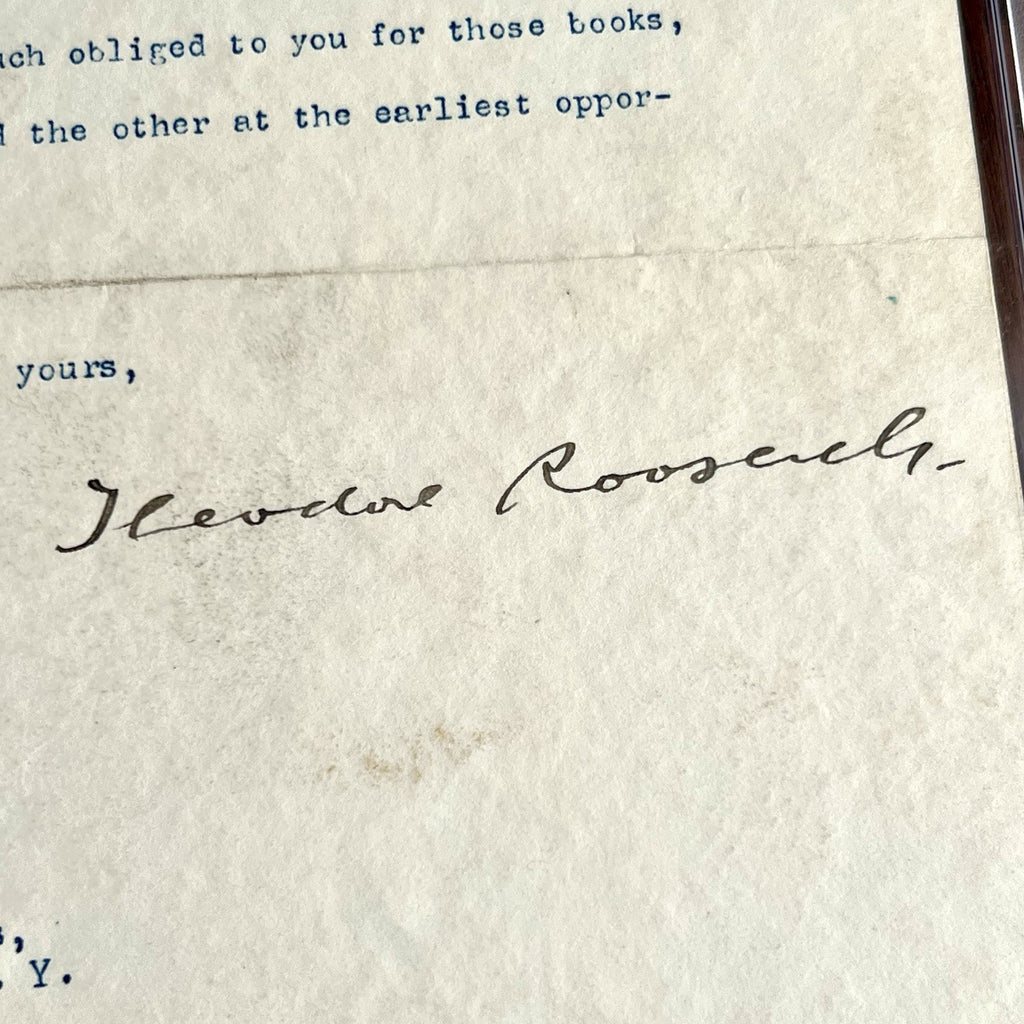 uch obliged to you for those books,
d the other at the earliest oppor-
yours,
Theodore Roosevelt
s,
. Y.